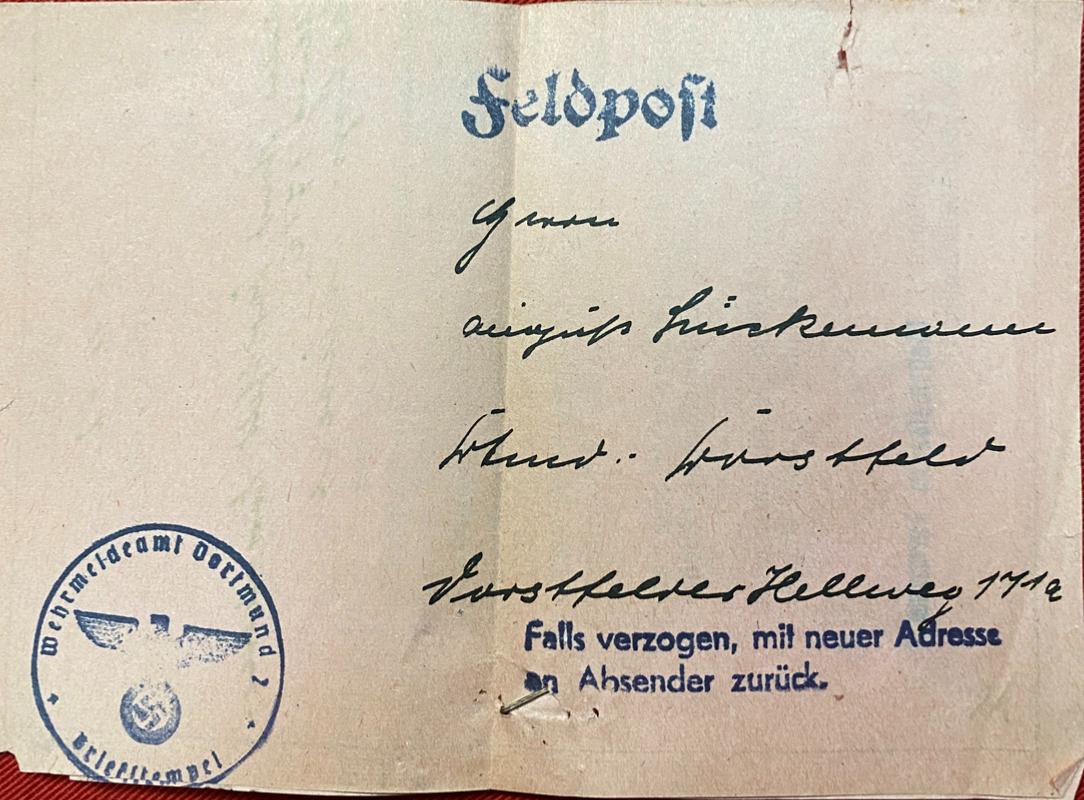 Feldpost
Herrn
August Lückemann
Dtmd.- Dorstfeld
Dorstfelder Hellweg 171a
Falls verzogen, mit neuer Adresse
an Absender zurück.
Wehrmeldeamt Dortmund 2
Briefstempel